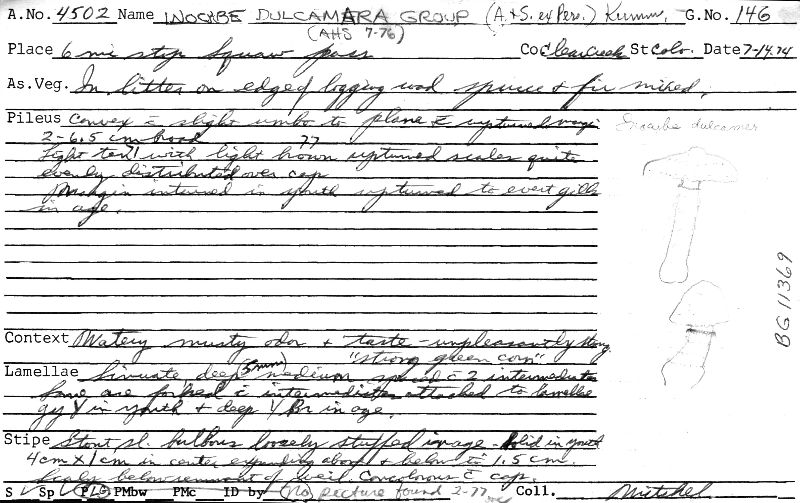 A.No. 4502 Name INOCYBE DULCAMARA GROUP (A.&S. ex Pers.) Kumm. G.No. 146
(AHS 7-76)
Place 6 mi stop Squaw pass Co Clear Creek St Colo. Date 7-14.74
As.Veg. In litter on edge of logging road spruce & fir mixed.
Pileus Convex c̄ slight umbo to plane c̄ upturned margin
2-6.5 cm broad
77
Light tan with light brown upturned scales quite
evenly distributed over cap
Margin inturned in youth upturned to evert gills
in age.
Inocybe dulcamer
BG11369
Context Watery musty odor & taste - unpleasantly strong
"strong green corn"
Lamellae Sinuate deep (5mm) medium spaced c̄ 2 intermediates
Some are forked c̄ intermediates attached to lamellae
gy Y in youth & deep Y Br in age.
Stipe Stout, sl. bulbous loosely stuffed in age - solid in youth
4cm X 1 cm in center expanding above & below to 1.5 cm.
Scaly below remnant of veil. Concolorous c̄ cap.
S Sp PLG PMbw PMc ID by (No picture found 2-77 Coll. Mitchel